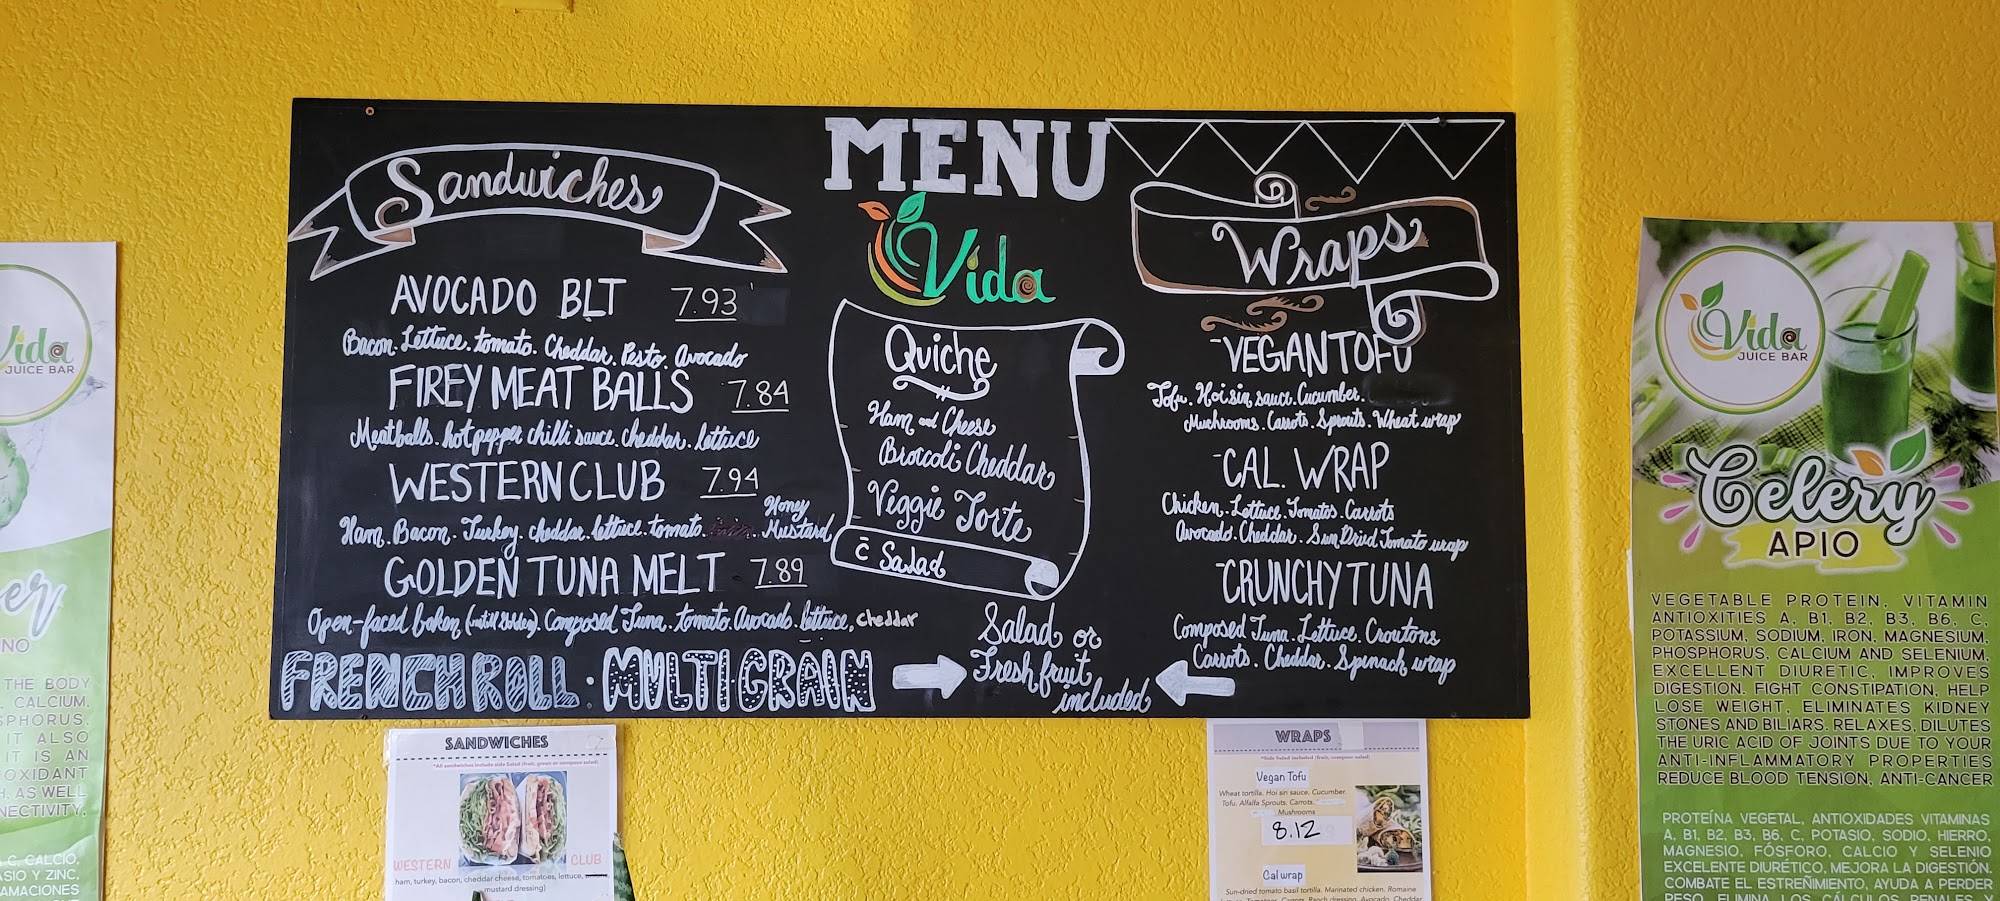 MENU
Vida
Sandwiches
AVOCADO BLT 7.93
Bacon. Lettuce. tomato. Cheddar. Pesto. Avocado
FIREY MEAT BALLS 7.84
Meatballs. hot pepper chilli sauce. cheddar. lettuce
WESTERN CLUB 7.94
Ham. Bacon. Turkey. cheddar. lettuce. tomato. Honey Mustard
GOLDEN TUNA MELT 7.89
Open-faced baken (until Golden). Composed Tuna. tomato. Avocado. lettuce, cheddar
FRENCH ROLL · MULTI·GRAIN
Quiche
Ham and Cheese
Broccoli Cheddar
Veggie Torte
c̄ Salad
Salad or
Fresh fruit
included
Wraps
-VEGAN TOFU
Tofu. Hoisin sauce. Cucumber.
Muchrooms. Carrots. Sprouts. Wheat wrap
-CAL. WRAP
Chicken. Lettuce. Tomatos. Carrots
Avocado. Cheddar. Sun Dried Tomato wrap
-CRUNCHY TUNA
Composed Tuna. Lettuce. Croutons
Carrots. Cheddar. Spinach wrap
Vida
JUICE BAR
er
NO
THE BODY
, CALCIUM,
SPHORUS.
IT ALSO
IT IS AN
OXIDANT
H, AS WELL
NECTIVITY.
C, CALCIO,
ASIO Y ZINC,
AMACIONES
SANDWICHES
*All sandwiches include side Salad (fruit, green or compose salad)
WESTERN CLUB
ham, turkey, bacon, cheddar cheese, tomatoes, lettuce,
mustard dressing)
WRAPS
*Side Salad included (fruit, compose salad)
Vegan Tofu
Wheat tortilla. Hoi sin sauce. Cucumber.
Tofu. Alfalfa Sprouts. Carrots.
Mushrooms
8.12
Cal wrap
Sun-dried tomato basil tortilla. Marinated chicken. Romaine
Lettuce. Tomatoes. Carrots. Ranch dressing. Avocado. Cheddar
Vida
JUICE BAR
Celery
APIO
VEGETABLE PROTEIN, VITAMIN
ANTIOXITIES A, B1, B2, B3, B6, C,
POTASSIUM, SODIUM, IRON, MAGNESIUM,
PHOSPHORUS, CALCIUM AND SELENIUM,
EXCELLENT DIURETIC, IMPROVES
DIGESTION. FIGHT CONSTIPATION, HELP
LOSE WEIGHT, ELIMINATES KIDNEY
STONES AND BILIARS. RELAXES, DILUTES
THE URIC ACID OF JOINTS DUE TO YOUR
ANTI-INFLAMMATORY PROPERTIES
REDUCE BLOOD TENSION, ANTI-CANCER
PROTEÍNA VEGETAL, ANTIOXIDADES VITAMINAS
A, B1, B2, B3, B6, C, POTASIO, SODIO, HIERRO,
MAGNESIO, FÓSFORO, CALCIO Y SELENIO
EXCELENTE DIURÉTICO, MEJORA LA DIGESTIÓN.
COMBATE EL ESTREÑIMIENTO, AYUDA A PERDER
PESO, ELIMINA LOS CÁLCULOS RENALES Y